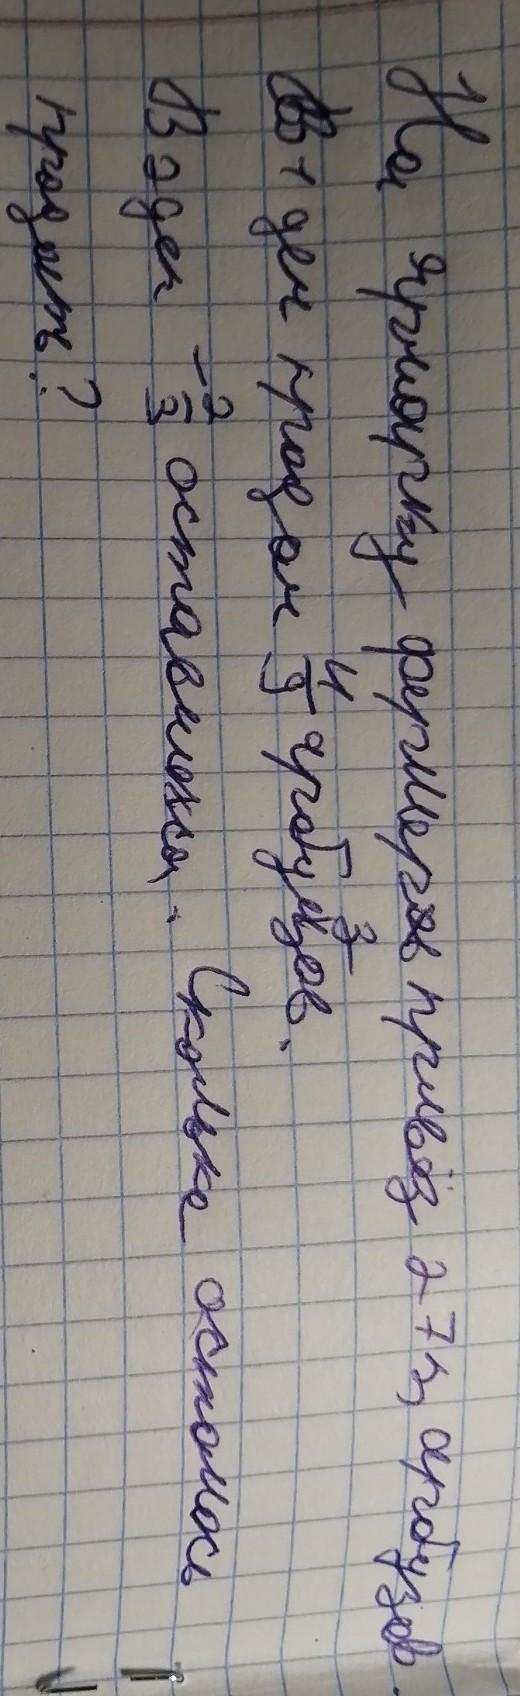 На ярмарку фермеров привёз 27 ц арбузов.
В 1 ден продал 4/9 арбузов.
В 2 ден - 2/3 оставшехся. Сколько осталось
продать?